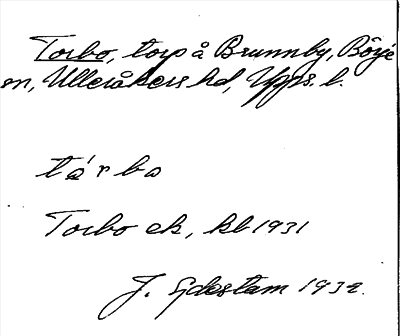 Torbo, torp å Brunnby, Börje
sn, Ulleråkers hd, Upps. l.
tárbo
Torbo ek, kb 1931
J. Sjdestam 1932.